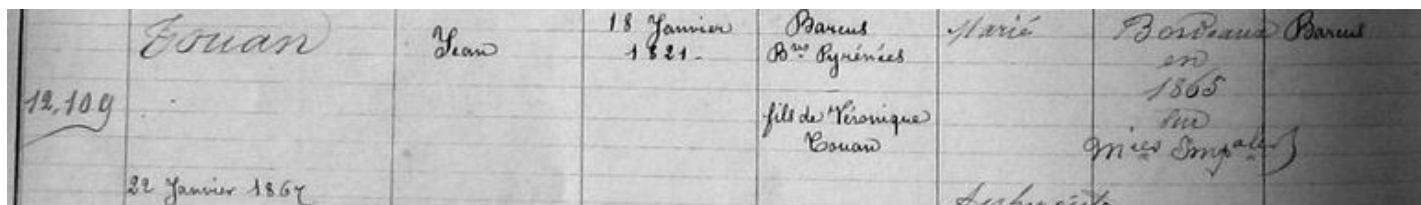 Touan
Jean
18 Janvier
1821.
Barcus
Bses Pyrénées
fils de Véronique
Touan
Marié
Bordeaux
en
1865
sur
Mies Impales
Barcus
12.109
22 Janvier 1867